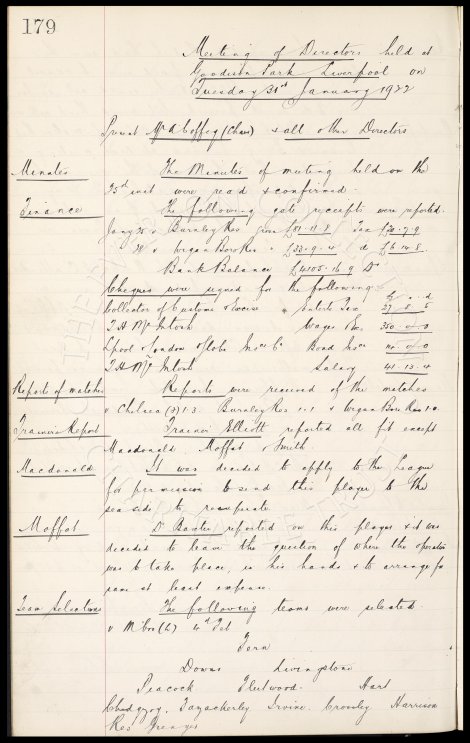 179
Meeting of Directors held at
Goodison Park Liverpool on
Tuesday 31st January 1922
Present Mr A Coffey (Chair) & all other Directors
Minutes The Minutes of meeting held on the
25th inst were read & confirmed.
Finance The following gate receipts were reported.
Jany v Burnley Res Tax
v Wigan Boro Res £33.9.4 do £6.14.8
Bank Balance £4105.16.9 Dr
Cheques were signed for the following £ s d
Collector of Customs & Excise Enterts Tax 27 8 5
T H McIntosh Wages Etc 350 0 0
Lpool & London & Globe Insce Co Bond Insce
T H McIntosh Salary 41.13.4
Report of matches Reports were received of the matches
v Chelsea (3) 1.3 Burnley Res 1.1 & Wigan Boro Res 1.0
Trainers Report Trainer Elliott reported all fit except
Macdonald. Moffat & Smith.
Macdonald It was decided to apply to the League
for permission to send this player to the
sea side to recuperate
Moffat Dr Baxter reported on this player & it was
decided to leave the question of where the operation
was to take place, in his hands & to arrange for
same at least expense.
Team Selections The following teams were selected.
v M'bro (h) 4th Feb
Fern
Downs Livingstone
Peacock Fleetwood. Hart
Chedgzoy. Fazackerley Irvine. Crossley Harrison
Res Grenyer